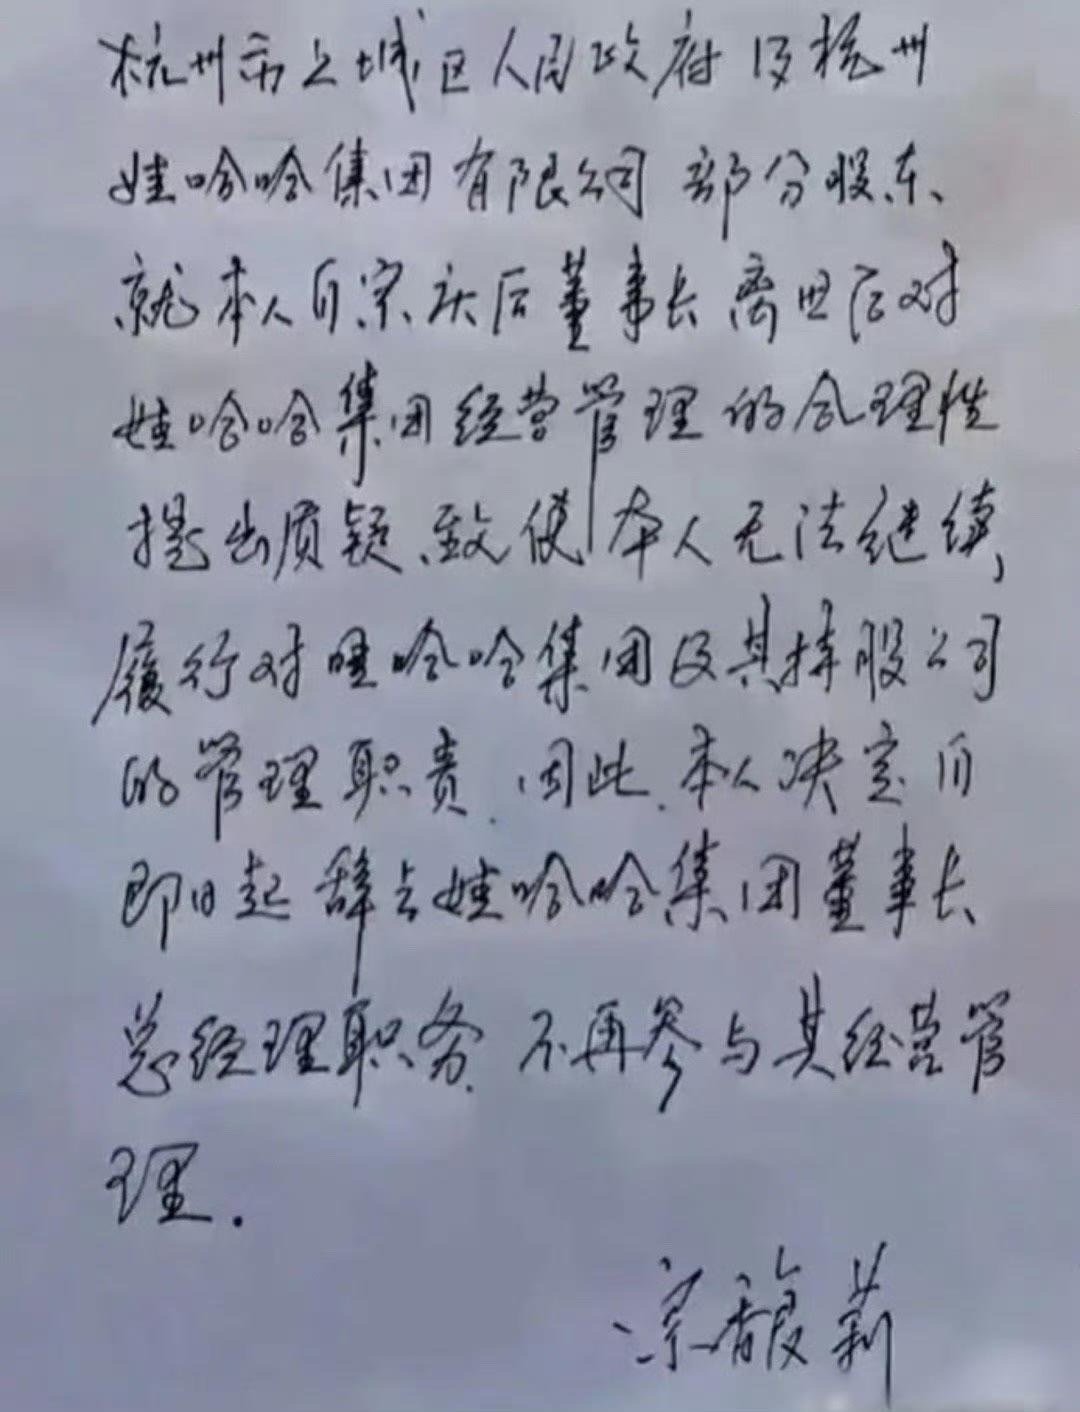 杭州市上城区人民政府及杭州
娃哈哈集团有限公司部分股东、
就本人自宗庆后董事长离世后对
娃哈哈集团经营管理的合理性
提出质疑、致使本人无法继续
履行对哇哈哈集团及其持股公司
的管理职责.因此.本人决定自
即日起辞去娃哈哈集团董事长
总经理职务.不再参与其经营管
理.
宗馥莉